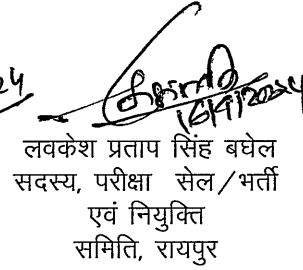 24
16/9/2024
लवकेश प्रताप सिंह बघेल
सदस्य, परीक्षा सेल/भर्ती
एवं नियुक्ति
समिति, रायपुर